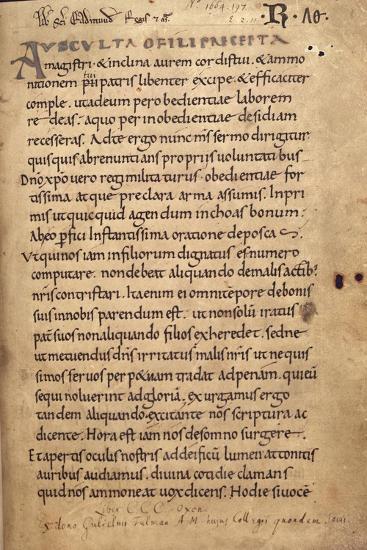 Lib Sci Eadmundi Regis & m̄.
No 1664. 197.
E. 2. 11. R. ΛΘ.
AUSCULTA O FILI PRECEPTA
magistri & inclina aurem cordis tui. & ammo
nitionem pii patris libenter excipe. & efficaciter
comple. ut ad eum per obedientiae laborem
redeas. a quo per inobedientiae desidiam
recesseras. Ad te ergo nunc m̄s sermo dirigitur
quisquis abrenuntians propriis voluntatibus
Dn̄o xp̄o vero regi militaturus. obedientiae for
tissima atque preclara arma assumis. Inpri
mis ut quicquid agendum inchoas bonum:
Ab eo ꝑfici Instantissima oratione deposcas.
Ut qui nos iam in filiorum dignatus est numero
computare. non debeat aliquando de malis actib:
n̄ris contristari. Ita enim ei omni tempore de bonis
suis in nobis parendum est. ut non solū iratus
pat̄ suos non aliquando filios exheredet. sed ne
ut metuendus dn̄s irritatus malis n̄ris ut nequis
simos servos perpetuam tradat ad penam. qui eū
sequi noluerint ad gloriā. exurgamus ergo
tandem aliquando excitante nos scriptura ac
dicente. Hora est iam nos de somno surgere.
Et apertis oculis nostris ad deificū lumen attonitis
auribus audiamus. divina cotidie clamans
quid nos ammoneat vox dicens. Hodie si vocē
Liber C C C Oxon.
Ex dono Gulielmi Fulman A. M. hujus Collegii quondam Socii.